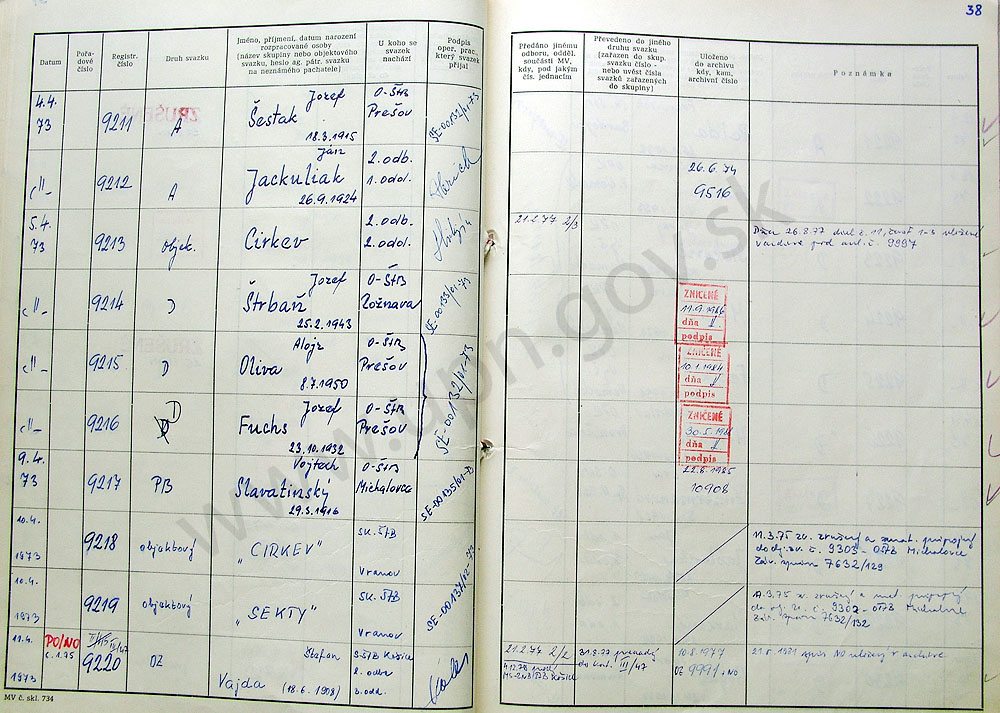 38
Datum
Pořa-
dové
číslo
Registr.
číslo
Druh svazku
Jméno, příjmení, datum narození
rozpracované osoby
(název skupiny nebo objektového
svazku, heslo ag. pátr. svazku
na neznámého pachatele)
U koho se
svazek
nachází
Podpis
oper. prac.,
který svazek
přijal
Předáno jinému
odboru, odděl.
součásti MV,
kdy, pod jakým
čís. jednacím
Převedeno do jiného
druhu svazku
(zařazen do skup.
svazku číslo -
nebo uvést čísla
svazků zařazených
do skupiny)
Uloženo
do archivu
kdy, kam,
archivní číslo
Poznámka
4.4.
73
9211
A
Jozef
Šesták
18.3.1915
O-ŠtB
Prešov
SE-00132/01-73
-"-
9212
A
Ján
Jackuliak
26.9.1924
2. odb.
1. odd.
26.6.74
9516
5.4.
73
9213
objek.
Cirkev
2. odb.
2. odd.
21.2.77 2/3
Dňa 26.8.77 diel č. 11, časť 1-3 uložené
pod č. 9997
-"-
9214
D
Jozef
Štrbaň
25.2.1943
O-ŠtB
Rožňava
SE-00133/01-73
ZNIČENÉ
11.9.1986
dňa
podpis
-"-
9215
D
Alojz
Oliva
8.7.1950
O-ŠtB
Prešov
SE-00132/01-73
ZNIČENÉ
10.1.1984
dňa
podpis
-"-
9216
D
Jozef
Fuchs
23.10.1932
O-ŠtB
Prešov
ZNIČENÉ
30.5.
dňa
podpis
9.4.
73
9217
PB
Vojtech
Slavatinský
29.3.1916
O-ŠtB
Michalovce
SE-00135/01-73
22.8.1985
10908
10.4.
1973
9218
objektový
„CIRKEV"
SK. ŠtB
Vranov
SE-00137/02-73
11.3.75 zv. zrušený a mat. pripojený
do obj. zv. č. 9303 - OŠtB Michalovce
Záv. správa 7632/129
10.4.
1973
9219
objektový
„SEKTY"
SK. ŠtB
Vranov
11.3.75 zv. zrušený a mat. pripojený
do obj. zv. č. 9302 - OŠtB Michalovce
Záv. správa 7632/132
11.4.
1973
PO/NO
č. 1.75
9220
OZ
Štefan
Vajda (18.6.1908)
S-ŠtB Košice
2. odbor
3. odd.
21.2.74 2/2
31.8.77
III/47
10.8.1977
OZ 9991 NO
MV č. skl. 734
www.upn.gov.sk